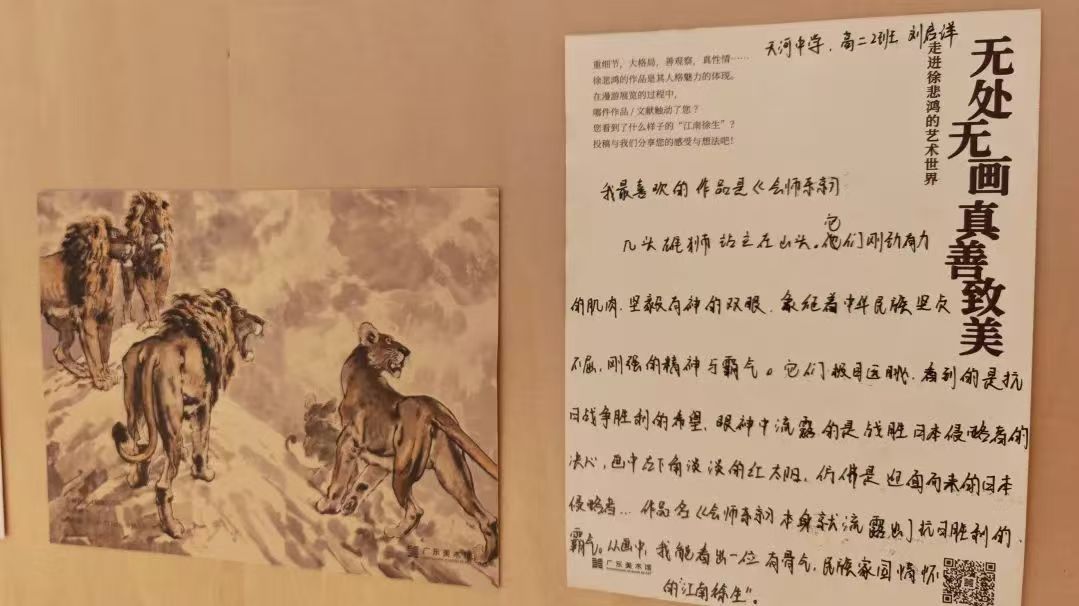 天河中学，高二2班 刘启洋
无处无画 真善致美
走进徐悲鸿的艺术世界
重细节，大格局，善观察，真性情……
徐悲鸿的作品是其人格魅力的体现。
在漫游展览的过程中，
哪件作品/文献触动了您？
您看到了什么样子的“江南徐生”？
投稿与我们分享您的感受与想法吧！
我最喜欢的作品是《会师东京》
几头雄狮站立在山头。它们刚劲有力
的肌肉，坚毅有神的双眼，象征着中华民族坚贞
不屈，刚强的精神与霸气。它们极目远眺，看到的是抗
日战争胜利的希望，眼神中流露的是战胜日本侵略者的
决心，画中左下角淡淡的红太阳，仿佛是迎面向来的日本
侵略者… 作品名《会师东京》本身就流露出了抗日胜利的
霸气。从画中，我能看出一位有骨气，民族家国情怀
的“江南徐生”。
广东美术馆
广东美术馆